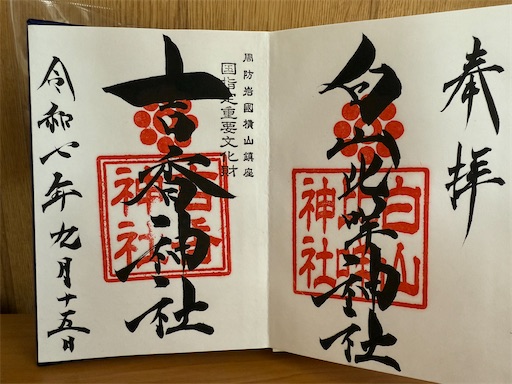 奉拝
白山比咩神社
白山
神社
周防岩國横山鎮座
国指定重要文化財
吉香神社
吉香
神社
令和七年九月十五日